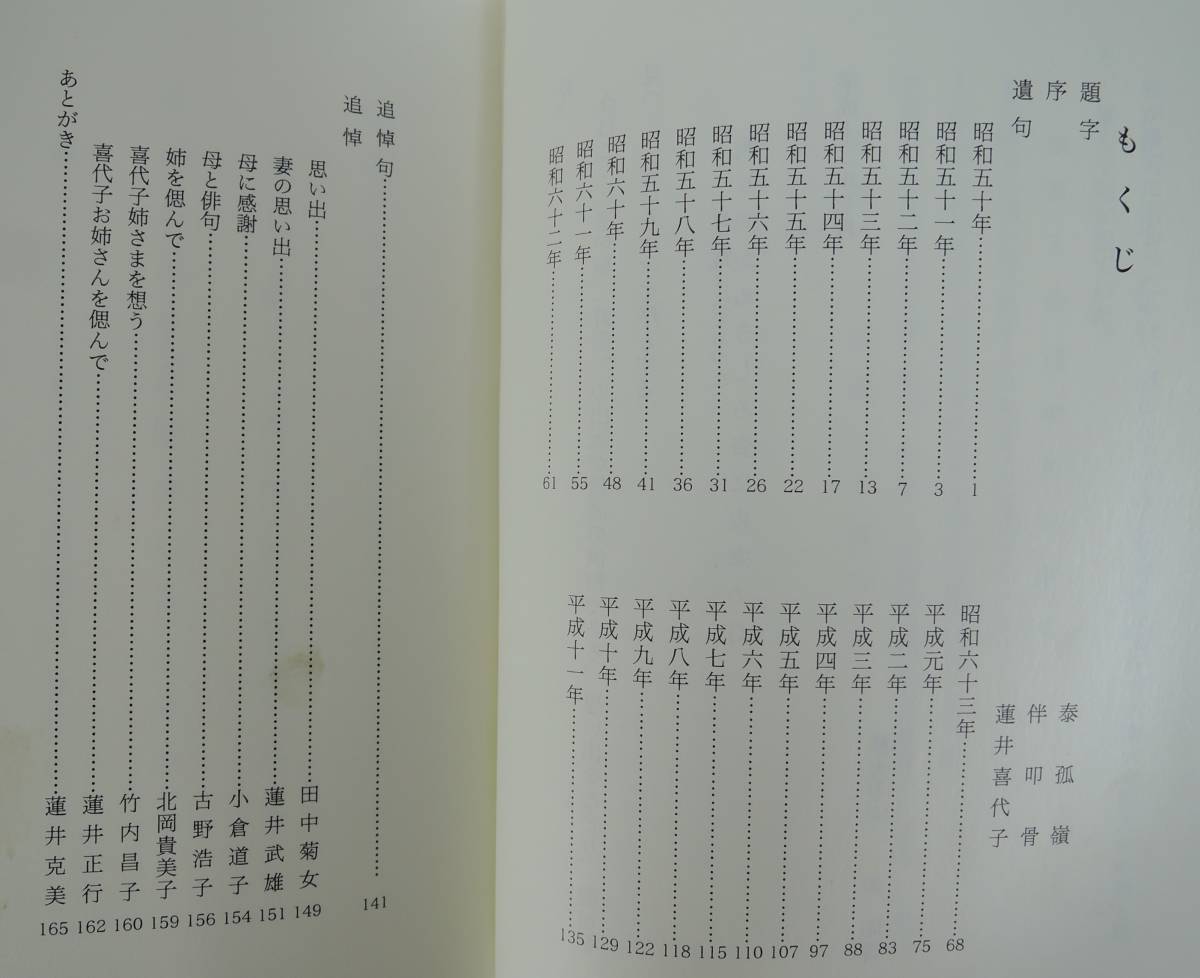 もくじ
題字 泰孤嶺
序 伴叩骨
遺句 蓮井喜代子
昭和五十年 1
昭和五十一年 3
昭和五十二年 7
昭和五十三年 13
昭和五十四年 17
昭和五十五年 22
昭和五十六年 26
昭和五十七年 31
昭和五十八年 36
昭和五十九年 41
昭和六十年 48
昭和六十一年 55
昭和六十二年 61
昭和六十三年 68
平成元年 75
平成二年 83
平成三年 88
平成四年 97
平成五年 107
平成六年 110
平成七年 115
平成八年 118
平成九年 122
平成十年 129
平成十一年 135
追悼句 141
追悼
思い出 田中菊女 149
妻の思い出 蓮井武雄 151
母に感謝 小倉道子 154
母と俳句 古野浩子 156
姉を偲んで 北岡貴美子 159
喜代子姉さまを想う 竹内昌子 160
喜代子お姉さんを偲んで 蓮井正行 162
あとがき 蓮井克美 165